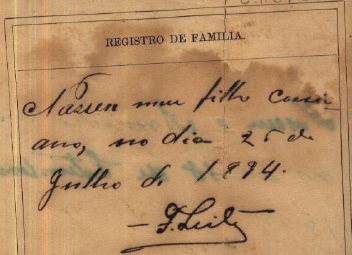 REGISTRO DE FAMILIA.
Nasceu meu filho cassi
ano, no dia 25 de
Julho de 1894.
— F. Leite